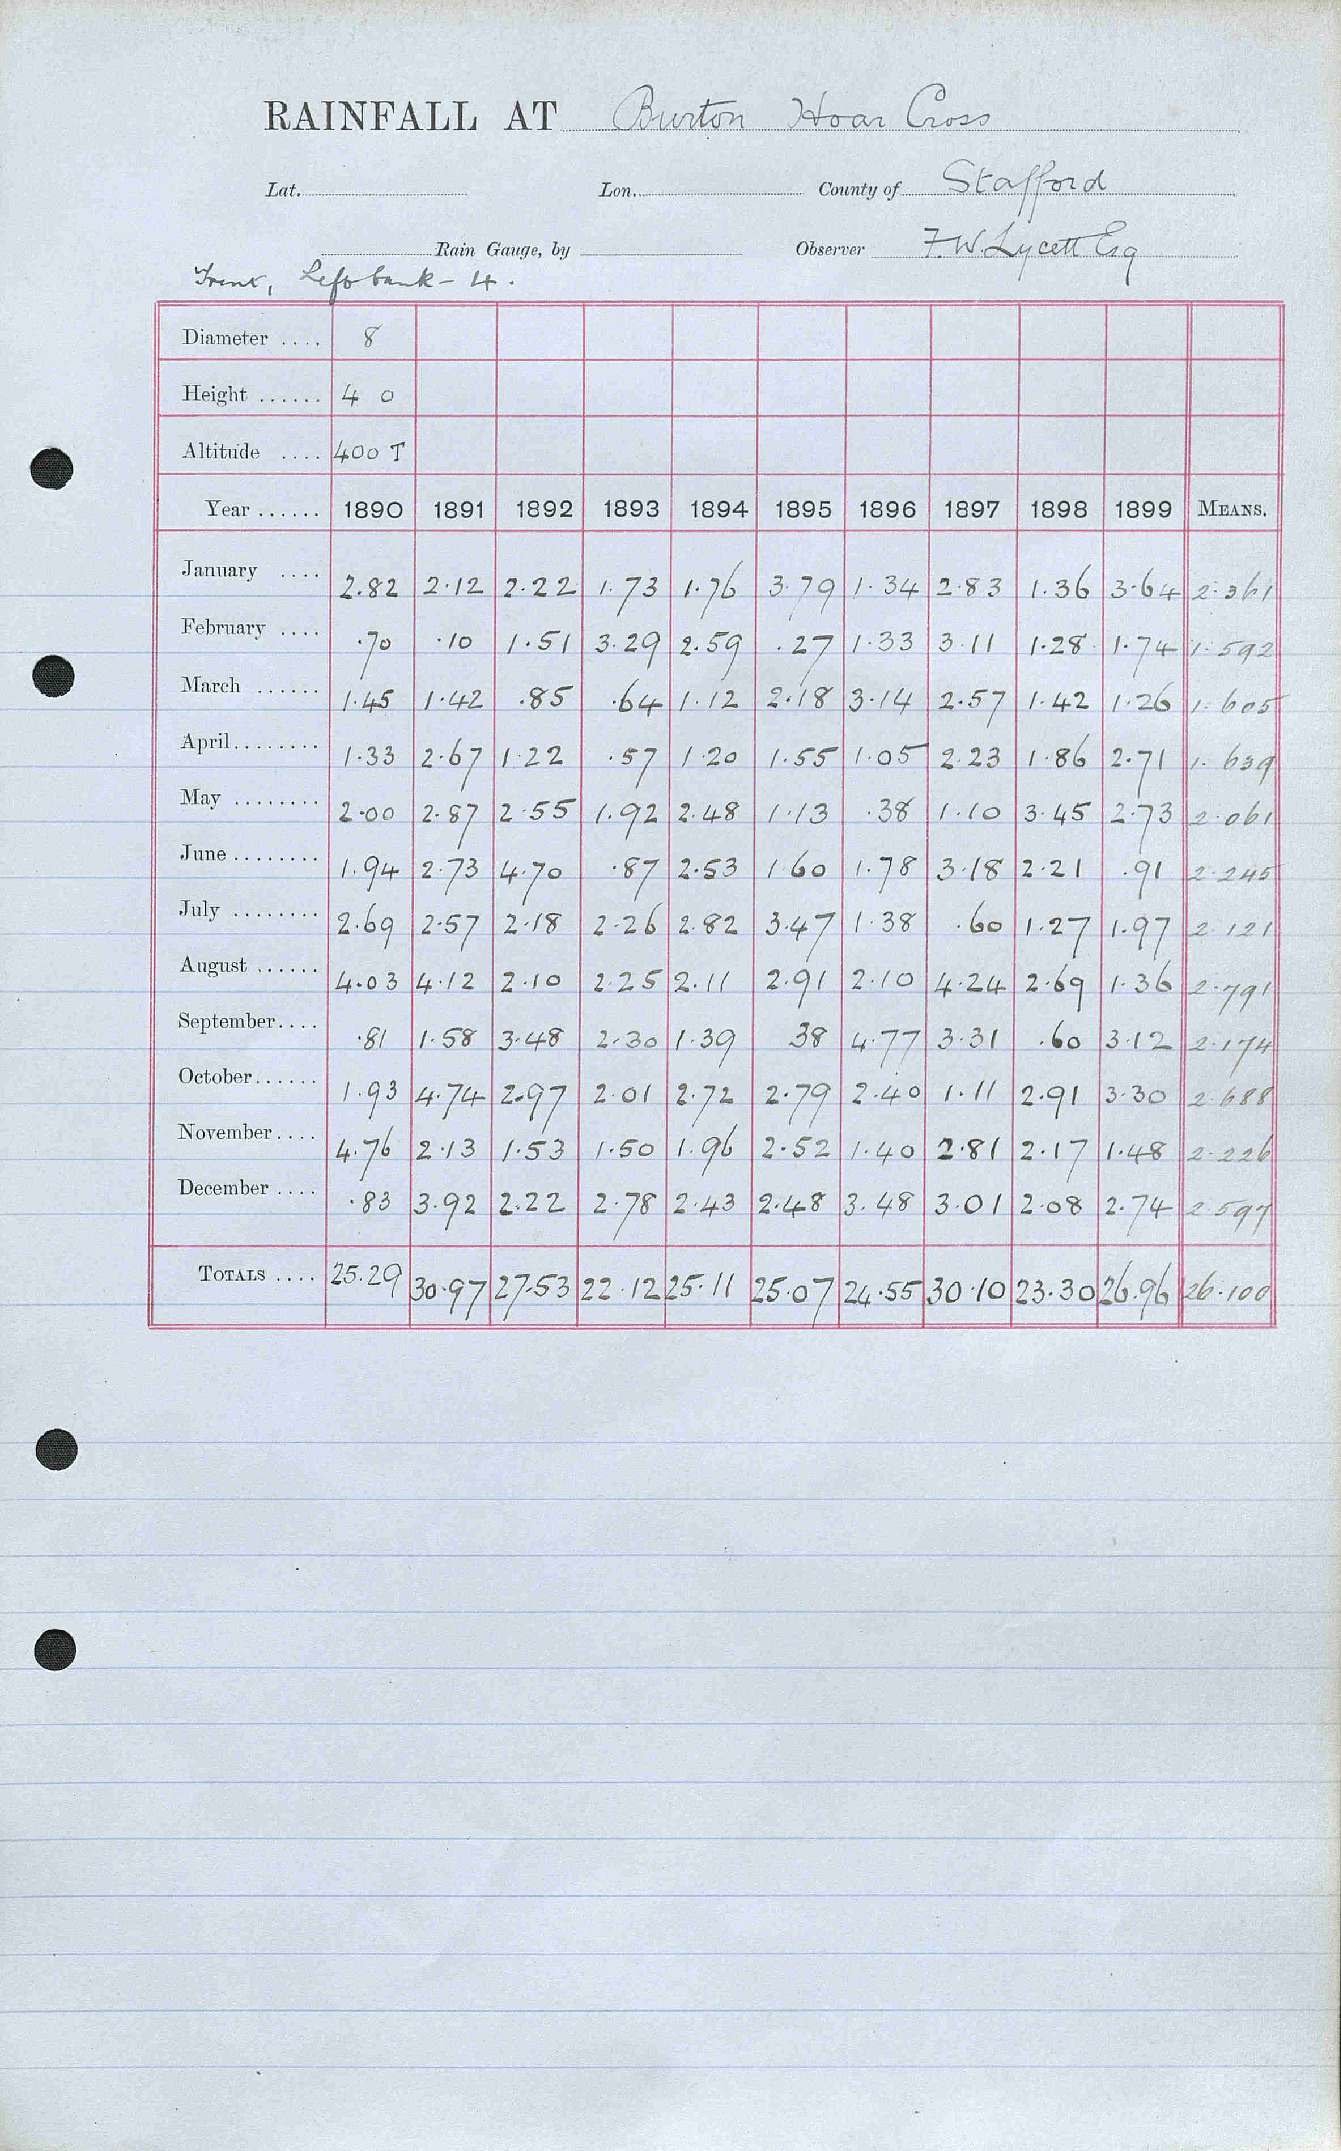 RAINFALL AT Burton Hoar Cross
Lat. Lon. County of Stafford
Rain Gauge, by Observer F. W. Lycett Esq
Trent, Left bank - 4.
Diameter .... 8
Height ...... 4 0
Altitude .... 400 T
Year ...... 1890 1891 1892 1893 1894 1895 1896 1897 1898 1899 MEANS.
January .... 2.82 2.12 2.22 1.73 1.76 3.79 1.34 2.83 1.36 3.64 2.361
February .... .70 .10 1.51 3.29 2.59 .27 1.33 3.11 1.28 1.74 1.592
March ...... 1.45 1.42 .85 .64 1.12 2.18 3.14 2.57 1.42 1.26 1.605
April........ 1.33 2.67 1.22 .57 1.20 1.55 1.05 2.23 1.86 2.71 1.639
May ........ 2.00 2.87 2.55 1.92 2.48 1.13 .38 1.10 3.45 2.73 2.061
June ........ 1.94 2.73 4.70 .87 2.53 1.60 1.78 3.18 2.21 .91 2.245
July ........ 2.69 2.57 2.18 2.26 2.82 3.47 1.38 .60 1.27 1.97 2.121
August ...... 4.03 4.12 2.10 2.25 2.11 2.91 2.10 4.24 2.69 1.36 2.791
September.... .81 1.58 3.48 2.30 1.39 38 4.77 3.31 .60 3.12 2.174
October...... 1.93 4.74 2.97 2.01 2.72 2.79 2.40 1.11 2.91 3.30 2.688
November.... 4.76 2.13 1.53 1.50 1.96 2.52 1.40 2.81 2.17 1.48 2.226
December .... .83 3.92 2.22 2.78 2.43 2.48 3.48 3.01 2.08 2.74 2.597
TOTALS .... 25.29 30.97 27.53 22.12 25.11 25.07 24.55 30.10 23.30 26.96 26.100